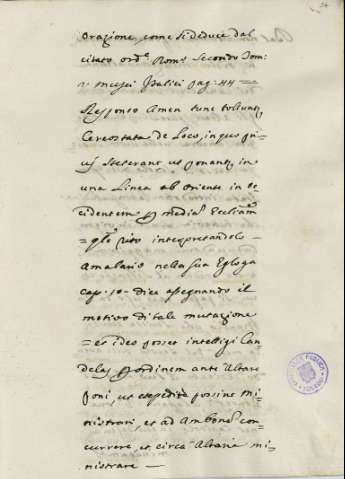 Orazione, come si deduce dal
citato ord.e Rom.o Secondo Tom:
Musei Italici pag: 44 =
Responso Amen tunc tolluntr
Cereostata de Loco, in quo pri=
us steterant ut ponantr in
una Linea ab oriente in oc=
cidentem p mediã Eccliãm
= qto rito interpretandolo
Amalario nella sua Egloga
cap. 10 = dice assegnando il
motivo di tale mutazione
= et ideo posset intelligi Can=
delas p ordinem ante Altare
poni, ut expedite possint mi=
nistrari, et ad Ambonẽ con=
currere, et circa Altaria mi=
nistrare —